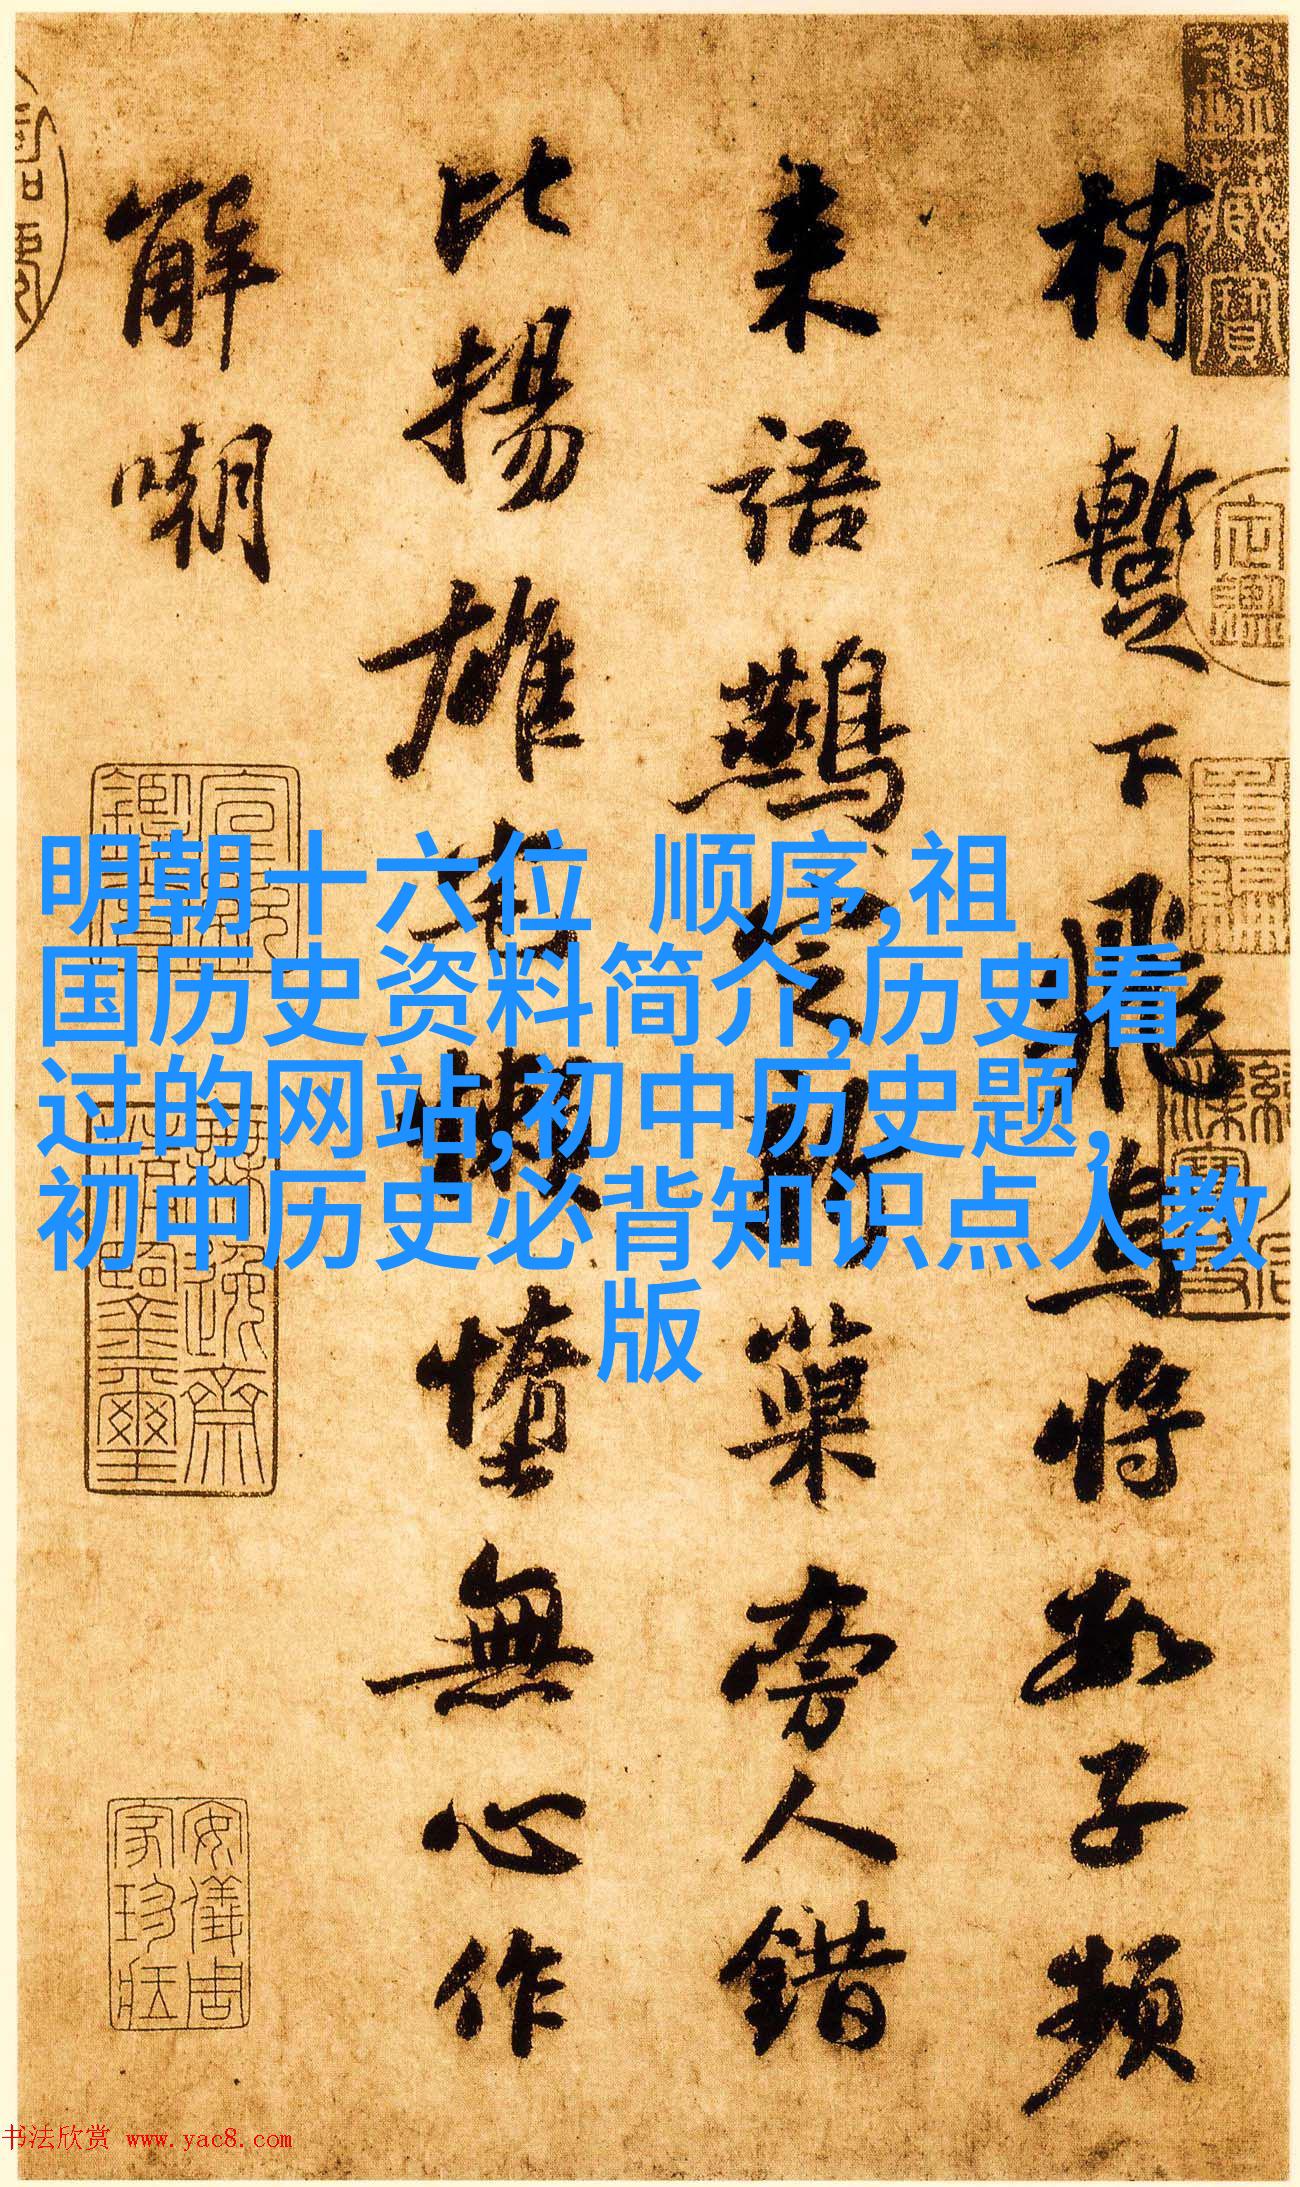 梢暫下飛烏將數子頻
来語鷰定新巢旁人錯
比揚雄宅懶惰無心作
解嘲
明朝十六位 顺序,祖
国历史资料简介,历史看
过的网站,初中历史题,
初中历史必背知识点人教
版
书法欣赏 www.yac8.com